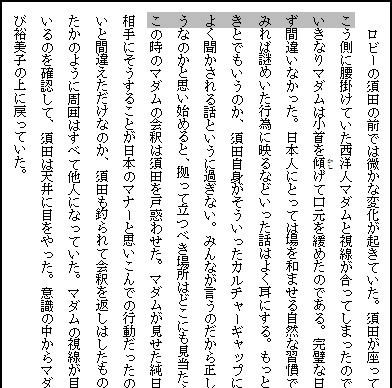 ロビーの須田の前では微かな変化が起きていた。須田が座っ
こう側に腰掛けていた西洋人マダムと視線が合ってしまったので
いきなりマダムは小首を傾げて口元を緩めたのである。完璧な
ず間違いなかった。日本人にとっては場を和ませる自然な習慣で
みれば謎めいた行為に映るなどいった話はよく耳にする。もっと
きとでもいうのか、須田自身がそういったカルチャーギャップに
よく聞かされる話というに過ぎない。みんなが言うのだから正し
うなのかと思い始めると、拠って立つべき場所はどこにも見当た
この時のマダムの会釈は須田を戸惑わせた。マダムが見せた純日
相手にそうすることが日本のマナーと思いこんでの行動だったの
いと間違えただけなのか、須田も釣られて会釈を返しはしたもの
たかのように周囲はすべて他人になっていた。マダムの視線が自
いるのを確認して、須田は天井に目をやった。意識の中からマダ
び裕美子の上に戻っていた。